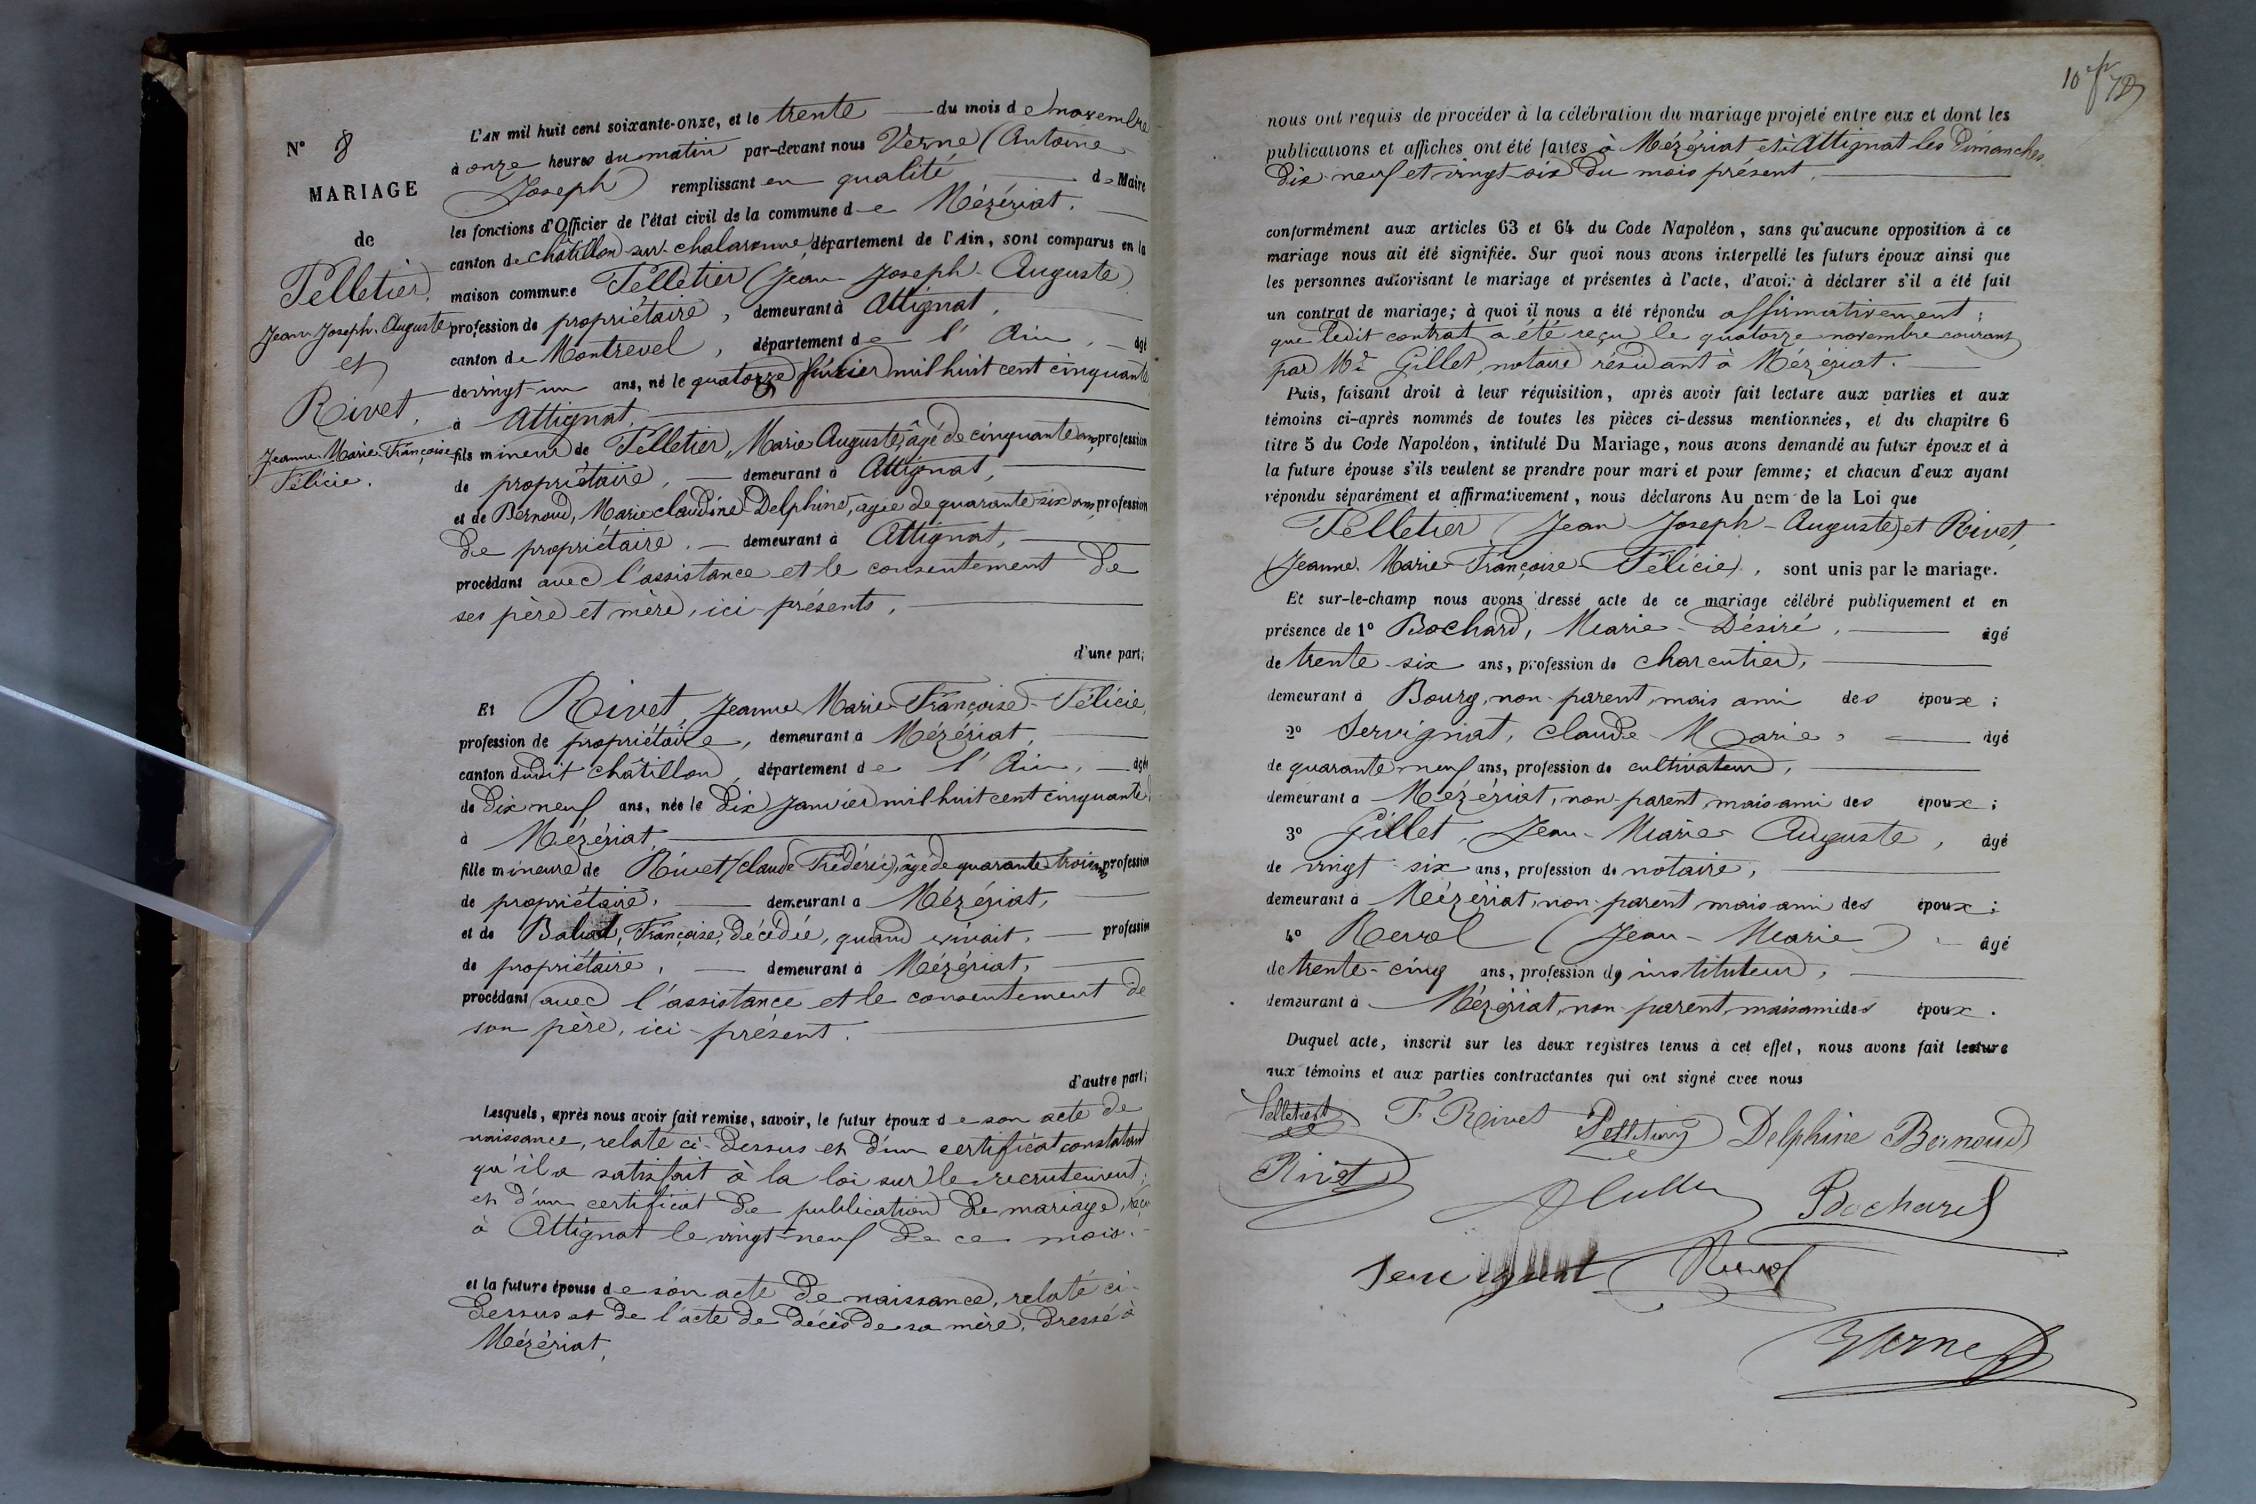 N° 8
MARIAGE
de
Pelletier,
Jean-Joseph-Auguste
et
Rivet,
Jeanne-Marie-Françoise
Félicie.
L'AN mil huit cent soixante-onze, et le trente du mois de novembre
à onze heures du matin par-devant nous Verne (Antoine
Joseph) remplissant en qualité de Maire
les fonctions d'Officier de l'état civil de la commune de Mézériat,
canton de Châtillon sur Chalaronne département de l'Ain, sont comparus en la
maison commune Pelletier (Jean-Joseph-Auguste)
profession de propriétaire, demeurant à Attignat,
canton de Montrevel, département de l'Ain, âgé
de vingt-un ans, né le quatorze février mil huit cent cinquante
à Attignat,
fils mineur de Pelletier, Marie Auguste, âgé de cinquante ans, profession
de propriétaire, demeurant à Attignat,
et de Bernoud, Marie claudine Delphine, agée de quarante six ans, profession
de propriétaire, demeurant à Attignat,
procédant avec l'assistance et le consentement de
ses père et mère, ici présents,
d'une part;
Et Rivet, Jeanne Marie-Françoise-Félicie,
profession de propriétaire, demeurant à Mézériat,
canton dudit châtillon, département de l'Ain, âgée
de dix neuf ans, née le dix janvier mil huit cent cinquante
à Mézériat,
fille mineure de Rivet (claude Frédéric), âgé de quarante trois ans, profession
de propriétaire, demeurant à Mézériat,
et de Françoise, décédée, quand vivait, profession
de propriétaire, demeurant à Mézériat,
procédant avec l'assistance et le consentement de
son père, ici-présent.
d'autre part;
Lesquels, après nous avoir fait remise, savoir, le futur époux de son acte de
naissance, relaté ci-dessus et d'un certificat constatant
qu'il a satisfait à la loi sur le recrutement;
et d'un certificat de publication de mariage, reçu
à Attignat le vingt-neuf de ce mois.
et la future épouse de son acte de naissance, relaté ci-
dessus et de l'acte de décès de sa mère, dressé à
Mézériat,
nous ont requis de procéder à la célébration du mariage projeté entre eux et dont les
publications et affiches ont été faites à Mézériat et à Attignat les dimanches
dix-neuf et vingt-six du mois présent,
conformément aux articles 63 et 64 du Code Napoléon, sans qu'aucune opposition à ce
mariage nous ait été signifiée. Sur quoi nous avons interpellé les futurs époux ainsi que
les personnes autorisant le mariage et présentes à l'acte, d'avoir à déclarer s'il a été fait
un contrat de mariage; à quoi il nous a été répondu affirmativement;
que ledit contrat a été reçu le quatorze novembre courant
par Me Gillet, notaire résidant à Mézériat.
Puis, faisant droit à leur réquisition, après avoir fait lecture aux parties et aux
témoins ci-après nommés de toutes les pièces ci-dessus mentionnées, et du chapitre 6
titre 5 du Code Napoléon, intitulé Du Mariage, nous avons demandé au futur époux et à
la future épouse s'ils veulent se prendre pour mari et pour femme; et chacun d'eux ayant
répondu séparément et affirmativement, nous déclarons Au nom de la Loi que
Pelletier (Jean-Joseph-Auguste) et Rivet,
(Jeanne Marie-Françoise-Félicie), sont unis par le mariage.
Et sur-le-champ nous avons dressé acte de ce mariage célébré publiquement et en
présence de 1° Bochard, Marie-Désiré, âgé
de trente-six ans, profession de charcutier,
demeurant à Bourg, non-parent, mais ami des époux;
2° Servignat, Claude-Marie, âgé
de quarante neuf ans, profession de cultivateur,
demeurant à Mézériat, non-parent, mais ami des époux;
3° Gillet, Jean-Marie-Auguste, âgé
de vingt-six ans, profession de notaire,
demeurant à Mézériat, non-parent, mais ami des époux;
4° Revol (Jean-Marie) âgé
de trente-cinq ans, profession de instituteur,
demeurant à Mézériat, non-parent, mais ami des époux.
Duquel acte, inscrit sur les deux registres tenus à cet effet, nous avons fait lecture
aux témoins et aux parties contractantes qui ont signé avec nous
Pelletier F. Rivet Pelletier Delphine Bernoud
Rivet Bochard
Servignat Revol
Verne